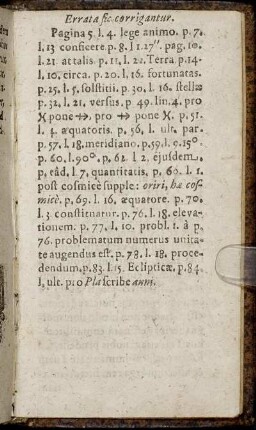 Errata sic corrigantur.
Pagina 5. l. 4. lege animo. p. 7.
l. 13 conficere. p. 8. l 1.27''. pag. 10.
l. 21. attalis. p. 11. l. 22. Terra. p. 14.
l. 10. circa. p. 20. l. 16. fortunatas.
p. 25. l. 5. solstitii. p. 30. l. 16. stellæ
p. 32. l. 21. versus. p 49. lin. 4. pro
pone pro pone p. 51.
l. 4. æquatoris. p. 56. l. ult. par.
p. 57. l. 18. meridiano. p. 59. l. 15°.
p. 60. l. 90°. p. 62. l 2. ejusdem.
p. eâd. l. 7. quantitatis. p. 60. l. 1.
post cosmicè supple: oriri, hæ cos-
micè. p. 69. l. 16. æquatore. p. 70.
l. 3. constituatur. p. 76. l. 18. eleva-
tionem. p. 77. l. 10. probl. 1. à p.
76. problematum numerus unita-
te augendus est. p. 78. l. 18. proce-
dendum. p. 83. l. 15. Eclipticæ. p. 84.
l. ult. pro Pla scribe aum.